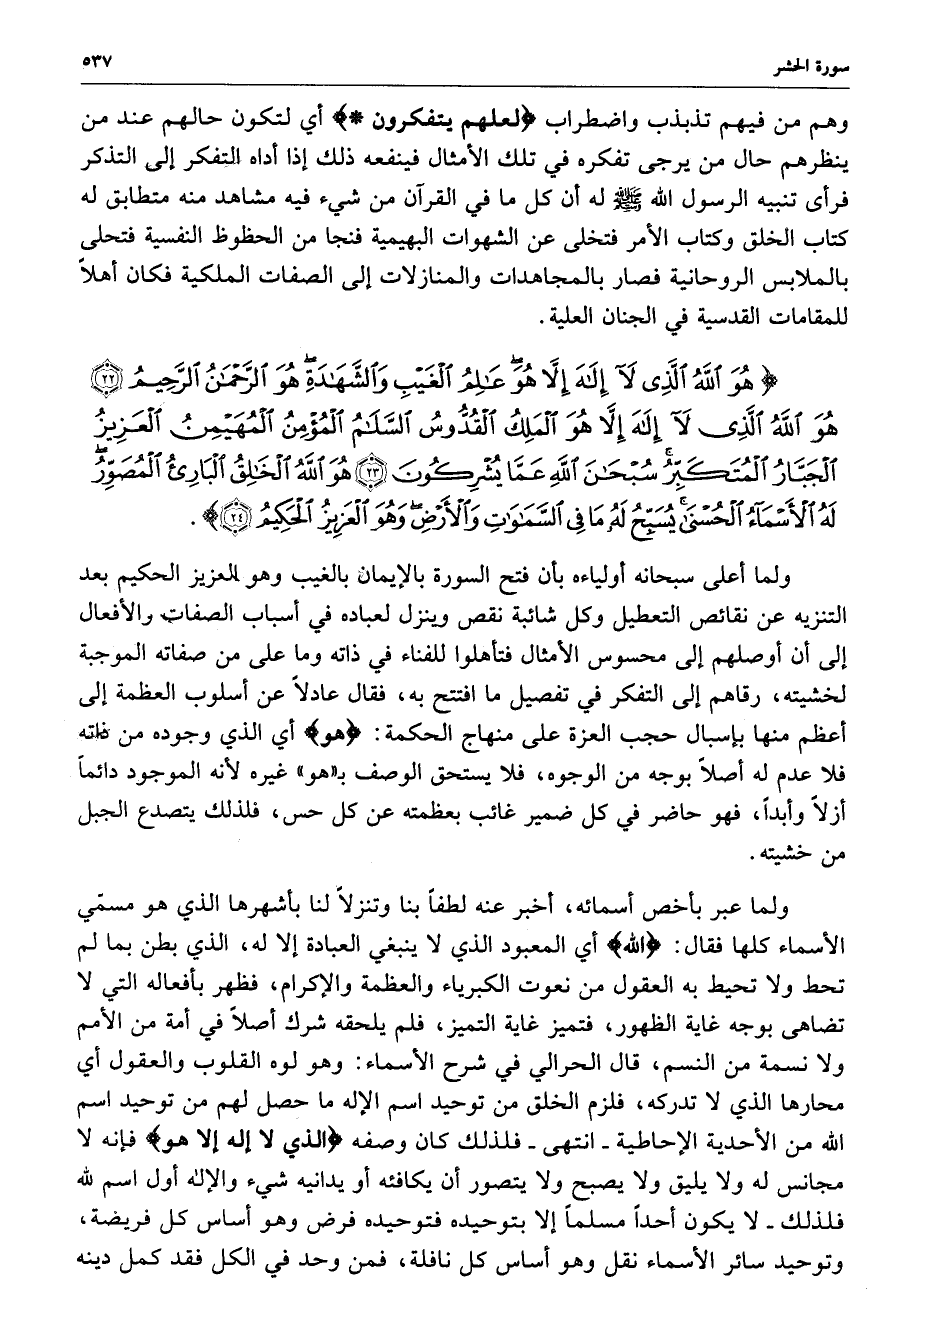 سورة الحشر ٥٣٧
وهم من فيهم تذبذب واضطراب ﴿لعلهم يتفكرون *﴾ أي لتكون حالهم عند من
ينظرهم حال من يرجى تفكره في تلك الأمثال فينفعه ذلك إذا أداه التفكر إلى التذكر
فرأى تنبيه الرسول الله ﷺ له أن كل ما في القرآن من شيء فيه مشاهد منه متطابق له
كتاب الخلق وكتاب الأمر فتخلى عن الشهوات البهيمية فنجا من الحظوظ النفسية فتحلى
بالملابس الروحانية فصار بالمجاهدات والمنازلات إلى الصفات الملكية فكان أهلاً
للمقامات القدسية في الجنان العلية.
﴿ هُوَ ٱللَّهُ ٱلَّذِى لَآ إِلَٰهَ إِلَّا هُوَۖ عَٰلِمُ ٱلْغَيْبِ وَٱلشَّهَٰدَةِۖ هُوَ ٱلرَّحْمَٰنُ ٱلرَّحِيمُ ٢٢
هُوَ ٱللَّهُ ٱلَّذِى لَآ إِلَٰهَ إِلَّا هُوَ ٱلْمَلِكُ ٱلْقُدُّوسُ ٱلسَّلَٰمُ ٱلْمُؤْمِنُ ٱلْمُهَيْمِنُ ٱلْعَزِيزُ
ٱلْجَبَّارُ ٱلْمُتَكَبِّرُۚ سُبْحَٰنَ ٱللَّهِ عَمَّا يُشْرِكُونَ ٢٣ هُوَ ٱللَّهُ ٱلْخَٰلِقُ ٱلْبَارِئُ ٱلْمُصَوِّرُۖ
لَهُ ٱلْأَسْمَآءُ ٱلْحُسْنَىٰۚ يُسَبِّحُ لَهُۥ مَا فِى ٱلسَّمَٰوَٰتِ وَٱلْأَرْضِۖ وَهُوَ ٱلْعَزِيزُ ٱلْحَكِيمُ ٢٤ ﴾.
ولما أعلى سبحانه أولياءه بأن فتح السورة بالإيمان بالغيب وهو العزيز الحكيم بعد
التنزيه عن نقائص التعطيل وكل شائبة نقص وينزل لعباده في أسباب الصفات والأفعال
إلى أن أوصلهم إلى محسوس الأمثال فتأهلوا للفناء في ذاته وما على من صفاته الموجبة
لخشيته، رقاهم إلى التفكر في تفصيل ما افتتح به، فقال عادلاً عن أسلوب العظمة إلى
أعظم منها بإسبال حجب العزة على منهاج الحكمة: ﴿هو﴾ أي الذي وجوده من ذاته
فلا عدم له أصلاً بوجه من الوجوه، فلا يستحق الوصف بـ«هو» غيره لأنه الموجود دائماً
أزلاً وأبداً، فهو حاضر في كل ضمير غائب بعظمته عن كل حس، فلذلك يتصدع الجبل
من خشيته.
ولما عبر بأخص أسمائه، أخبر عنه لطفاً بنا وتنزلاً لنا بأشهرها الذي هو مسمّي
الأسماء كلها فقال: ﴿الله﴾ أي المعبود الذي لا ينبغي العبادة إلا له، الذي بطن بما لم
تحط ولا تحيط به العقول من نعوت الكبرياء والعظمة والإكرام، فظهر بأفعاله التي لا
تضاهى بوجه غاية الظهور، فتميز غاية التميز، فلم يلحقه شرك أصلاً في أمة من الأمم
ولا نسمة من النسم، قال الحرالي في شرح الأسماء: وهو لوه القلوب والعقول أي
محارها الذي لا تدركه، فلزم الخلق من توحيد اسم الإله ما حصل لهم من توحيد اسم
الله من الأحدية الإحاطية ـ انتهى ـ فلذلك كان وصفه ﴿الذي لا إله إلا هو﴾ فإنه لا
مجانس له ولا يليق ولا يصبح ولا يتصور أن يكافئه أو يدانيه شيء والإله أول اسم لله
فلذلك ـ لا يكون أحداً مسلماً إلا بتوحيده فتوحيده فرض وهو أساس كل فريضة،
وتوحيد سائر الأسماء نقل وهو أساس كل نافلة، فمن وحد في الكل فقد كمل دينه